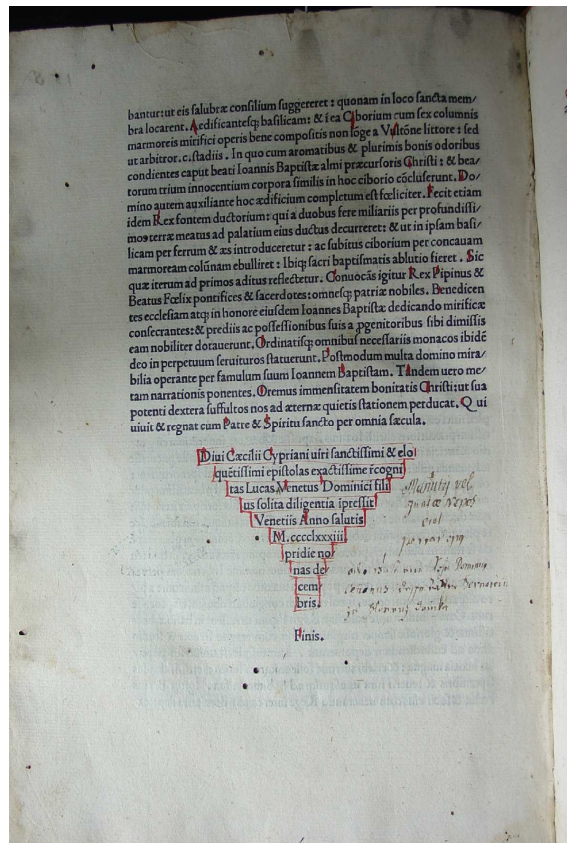 bantur: ut eis salubræ consilium suggereret: quonam in loco sancta mem/
bra locarent. Aedificantesq; basilicam: & ī ea Ciborium cum sex columnis
marmoreis mirifici operis bene compositis non lōge a Vultōne littore: sed
ut arbitror. c. stadiis. In quo cum aromatibus & plurimis bonis odoribus
condientes caput beati Ioannis Baptistæ almi præcursoris Christi: & bea/
torum trium innocentium corpora similis in hoc ciborio cōcluserunt. Do/
mino autem auxiliante hoc ædificium completum est fœliciter. Fecit etiam
idem Rex fontem ductorium: qui a duobus fere miliariis per profundissi/
mos terræ meatus ad palatium eius ductus decurreret: & ut in ipsam basi/
licam per ferrum & æs introduceretur: ac subitus ciborium per concauam
marmoream colūnam ebulliret: Ibiq; sacri baptismatis ablutio fieret. Sic
quæ iterum ad primos aditus reflectetur. Conuocās igitur Rex Pipinus &
Beatus Fœlix pontifices & sacerdotes: omnesq; patriæ nobiles. Benedicen
tes ecclesiam atq; in honorē eiusdem Ioannes Baptistæ dedicando mirificæ
consecrantes: & prediis ac possessionibus suis a ꝓgenitoribus sibi dimissis
eam nobiliter dotauerunt. Ordinatisq; omnibus necessariis monacos ibidē
deo in perpetuum seruituros statuerunt. Postmodum multa domino mira/
bilia operante per famulum suum Ioannem Baptistam. Tandem uero me/
tam narrationis ponentes. Oremus immensitatem bonitatis Christi: ut sua
potenti dextera suffultos nos ad æternæ quietis stationem perducat. Qui
uiuit & regnat cum Patre & Spiritu sancto per omnia sæcula.
Diui Cæcilii Cypriani uiri sanctissimi & elo
quētissimi epistolas exactissime r̄cogni
tas Lucas Venetus Dominici fili
us solita diligentia īpressit
Venetiis Anno salutis
M.cccclxxxiii
pridie no
nas de
cem
bris.
Finis.